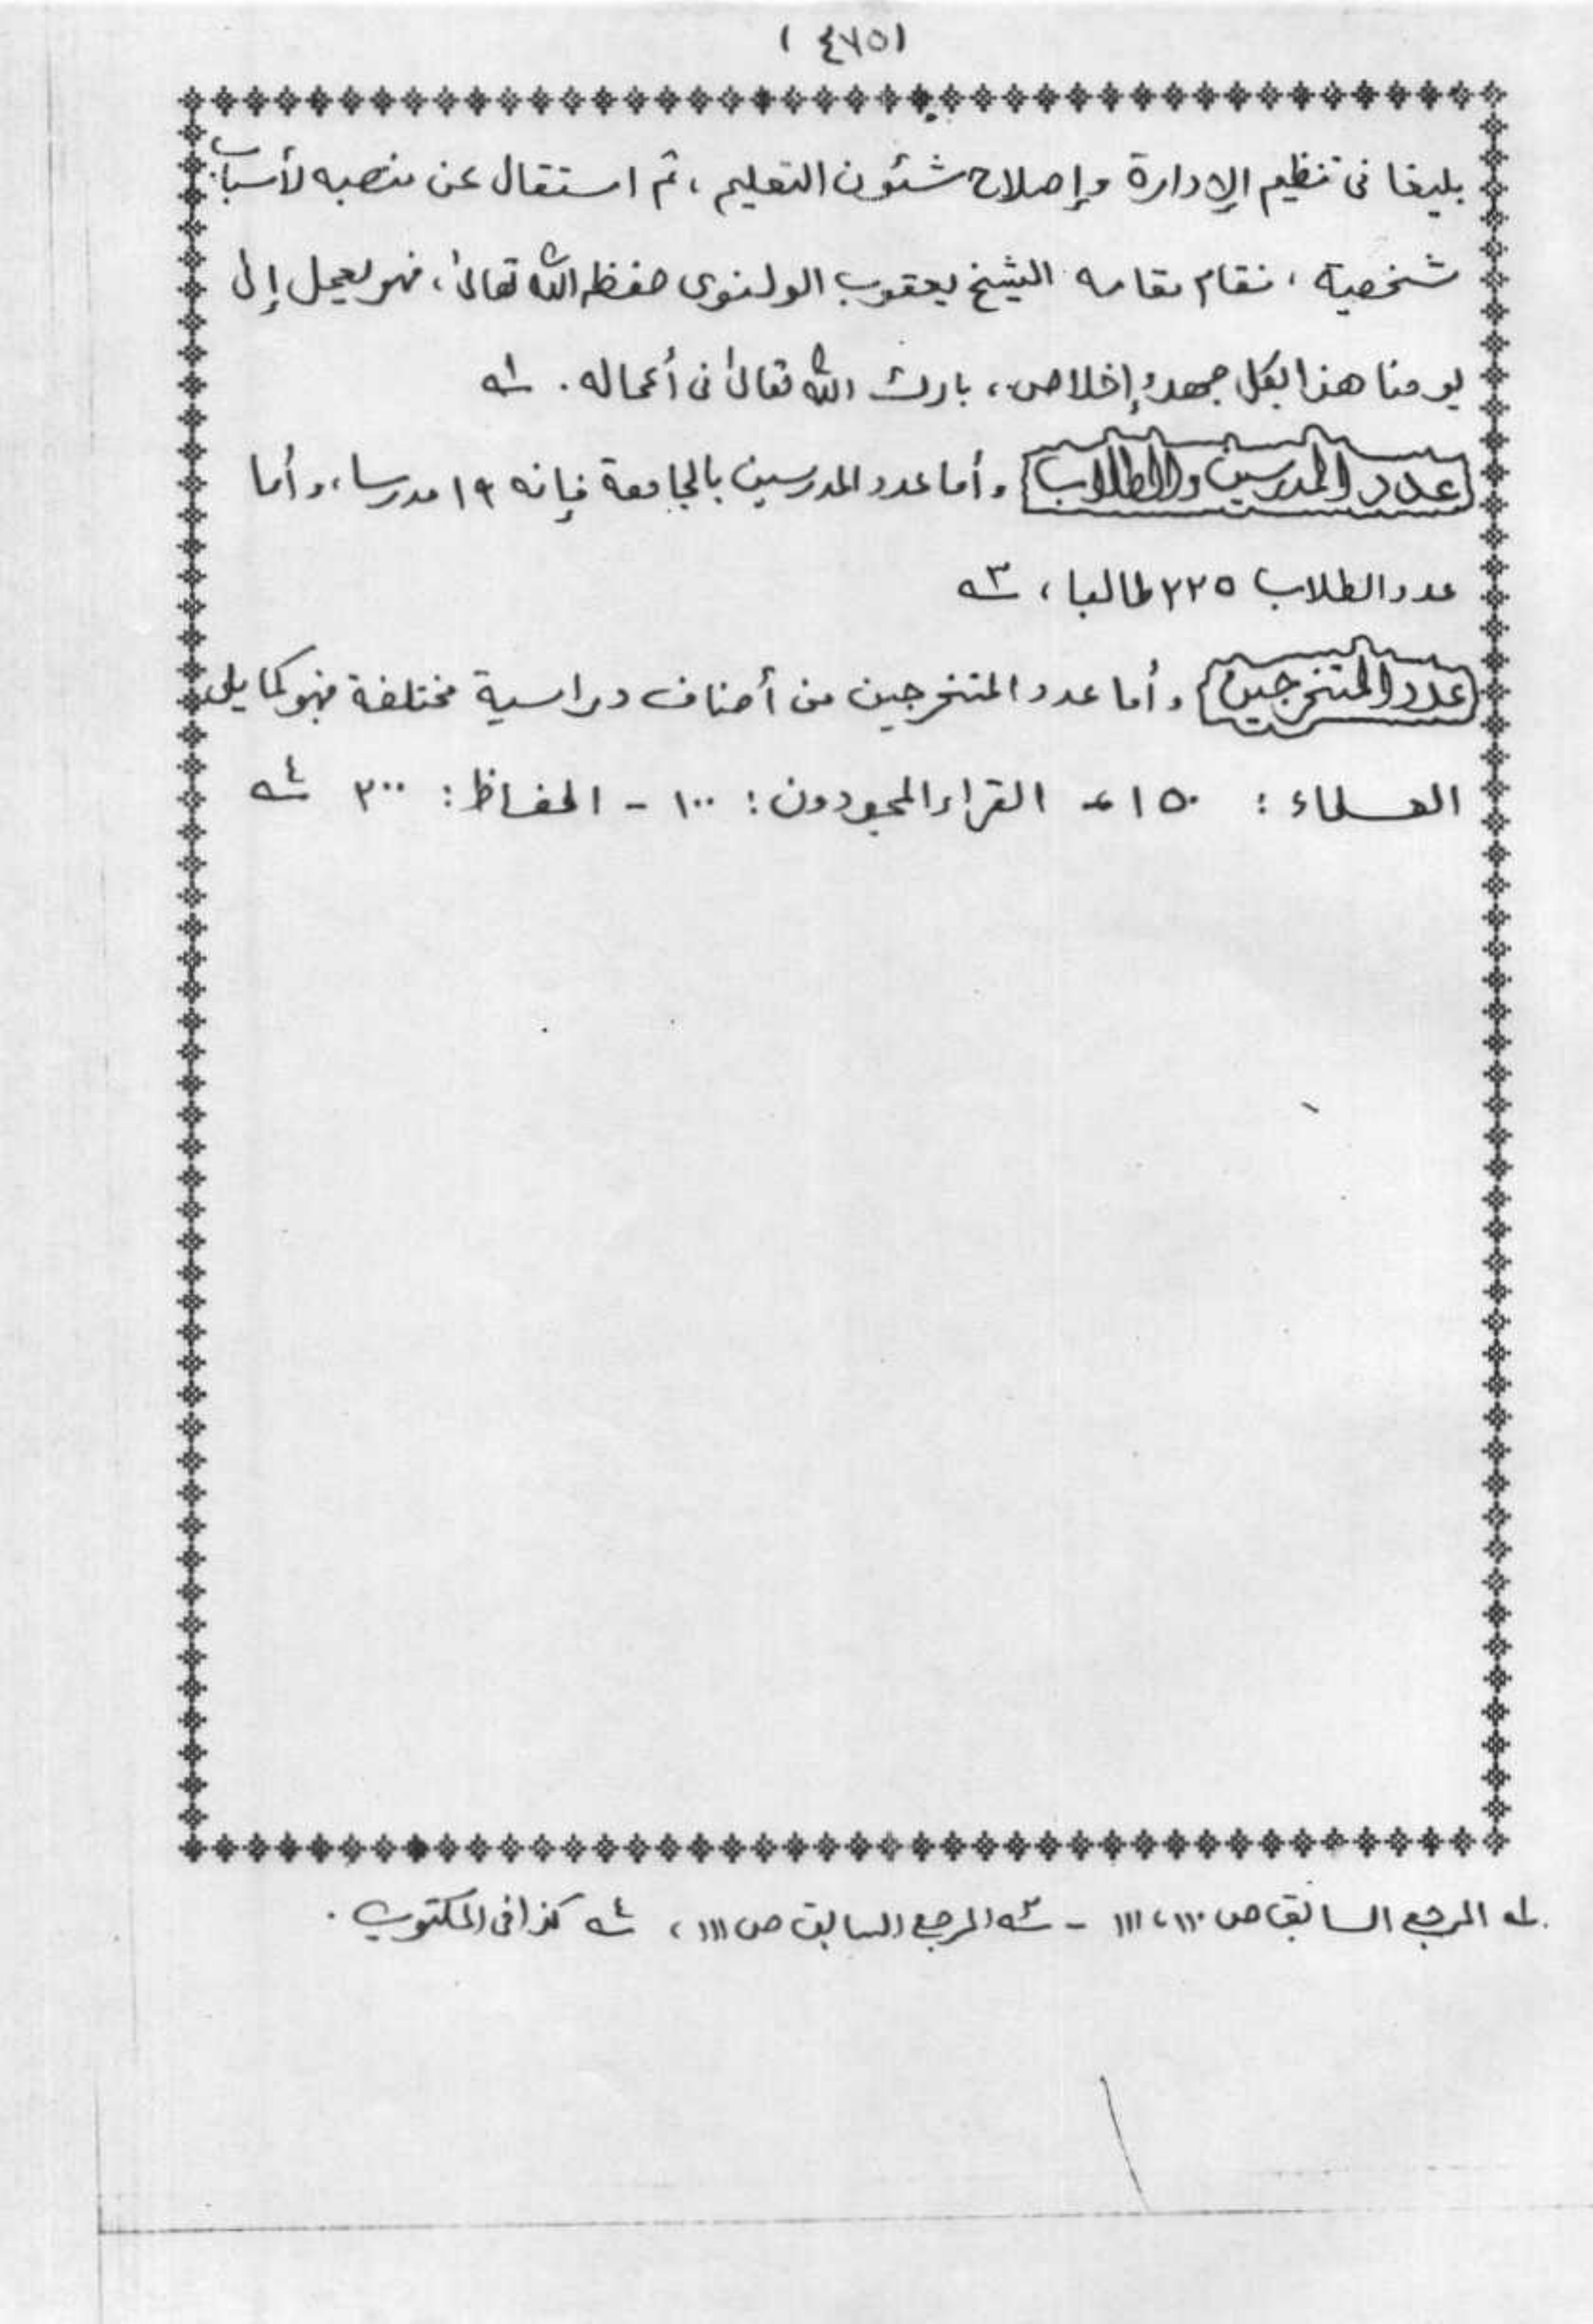 (٤٧٥)
بليغا فى تنظيم الإدارة وإصلاح شئون التعليم ، ثم استقال عن منصبه لأسباب
شخصية ، فقام مقامه الشيخ يعقوب الولنوى حفظه الله تعالى ، فهو يعمل إلى
يومنا هذا بكل جهد وإخلاص ، بارك الله تعالى فى أعماله . ١ـه
عدد المدرسين والطلاب وأما عدد المدرسين بالجامعة فإنه ١٩ مدرسا ، وأما
عدد الطلاب ٢٢٥ طالبا ، ٣ـه
عدد المتخرجين وأما عدد المتخرجين من أصناف دراسية مختلفة فهو كما يلى
العلماء : ١٥٠ - القراء المجودون : ١٠٠ - الحفاظ : ٣٠٠ ٤ـه
١ـه المرجع السابق ص ١١٠ ، ١١١ - ٣ـه المرجع السابق ص ١١١ ، ٤ـه كذا فى المكتوب .